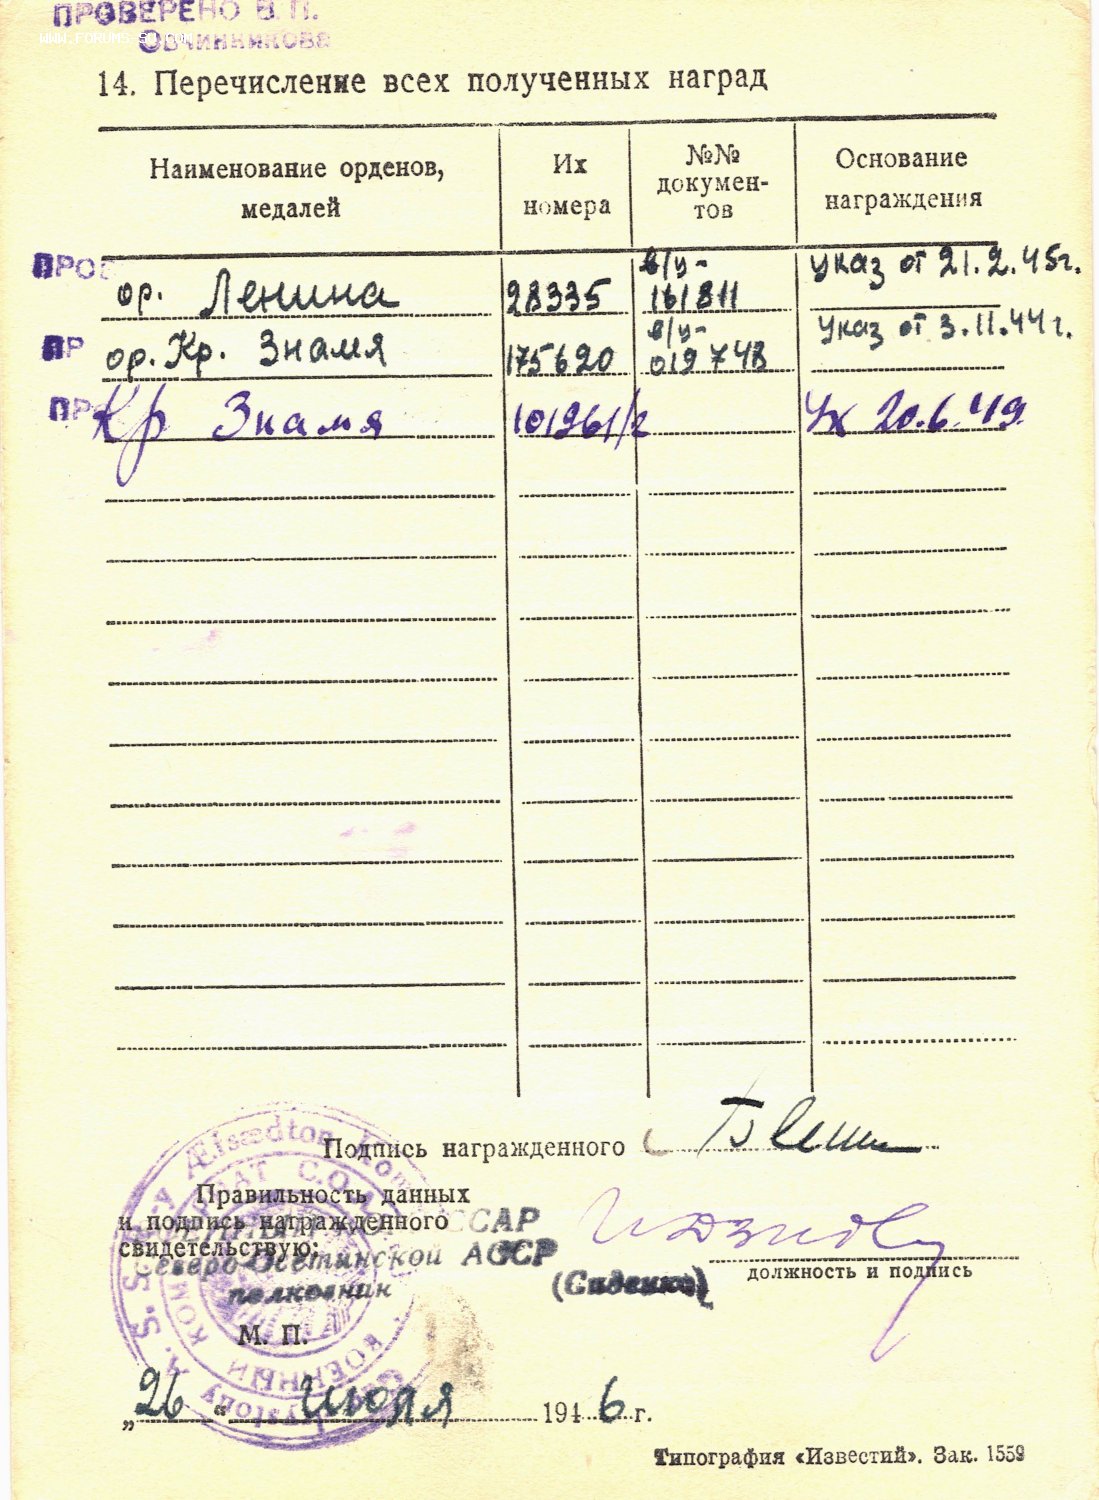 ПРОВЕРЕНО В. П.
Овчинникова
14. Перечисление всех полученных наград
Наименование орденов, медалей
Их номера
№№ документов
Основание награждения
ПРОВ
ор. Ленина 28335 в/у- 161811 указ от 21.2.45г.
ПР
ор. Кр. Знамя 175620 в/у- 019748 указ от 3.11.44г.
ПР
Кр Знамя 101961/2 Ук 20.6.49.
Подпись награжденного
Правильность данных
и подпись награжденного
свидетельствую:
ССАР
Северо-Осетинской АССР
полковник (Сиденко)
должность и подпись
М. П.
„26“ июля 1946 г.
Типография «Известий». Зак. 1559